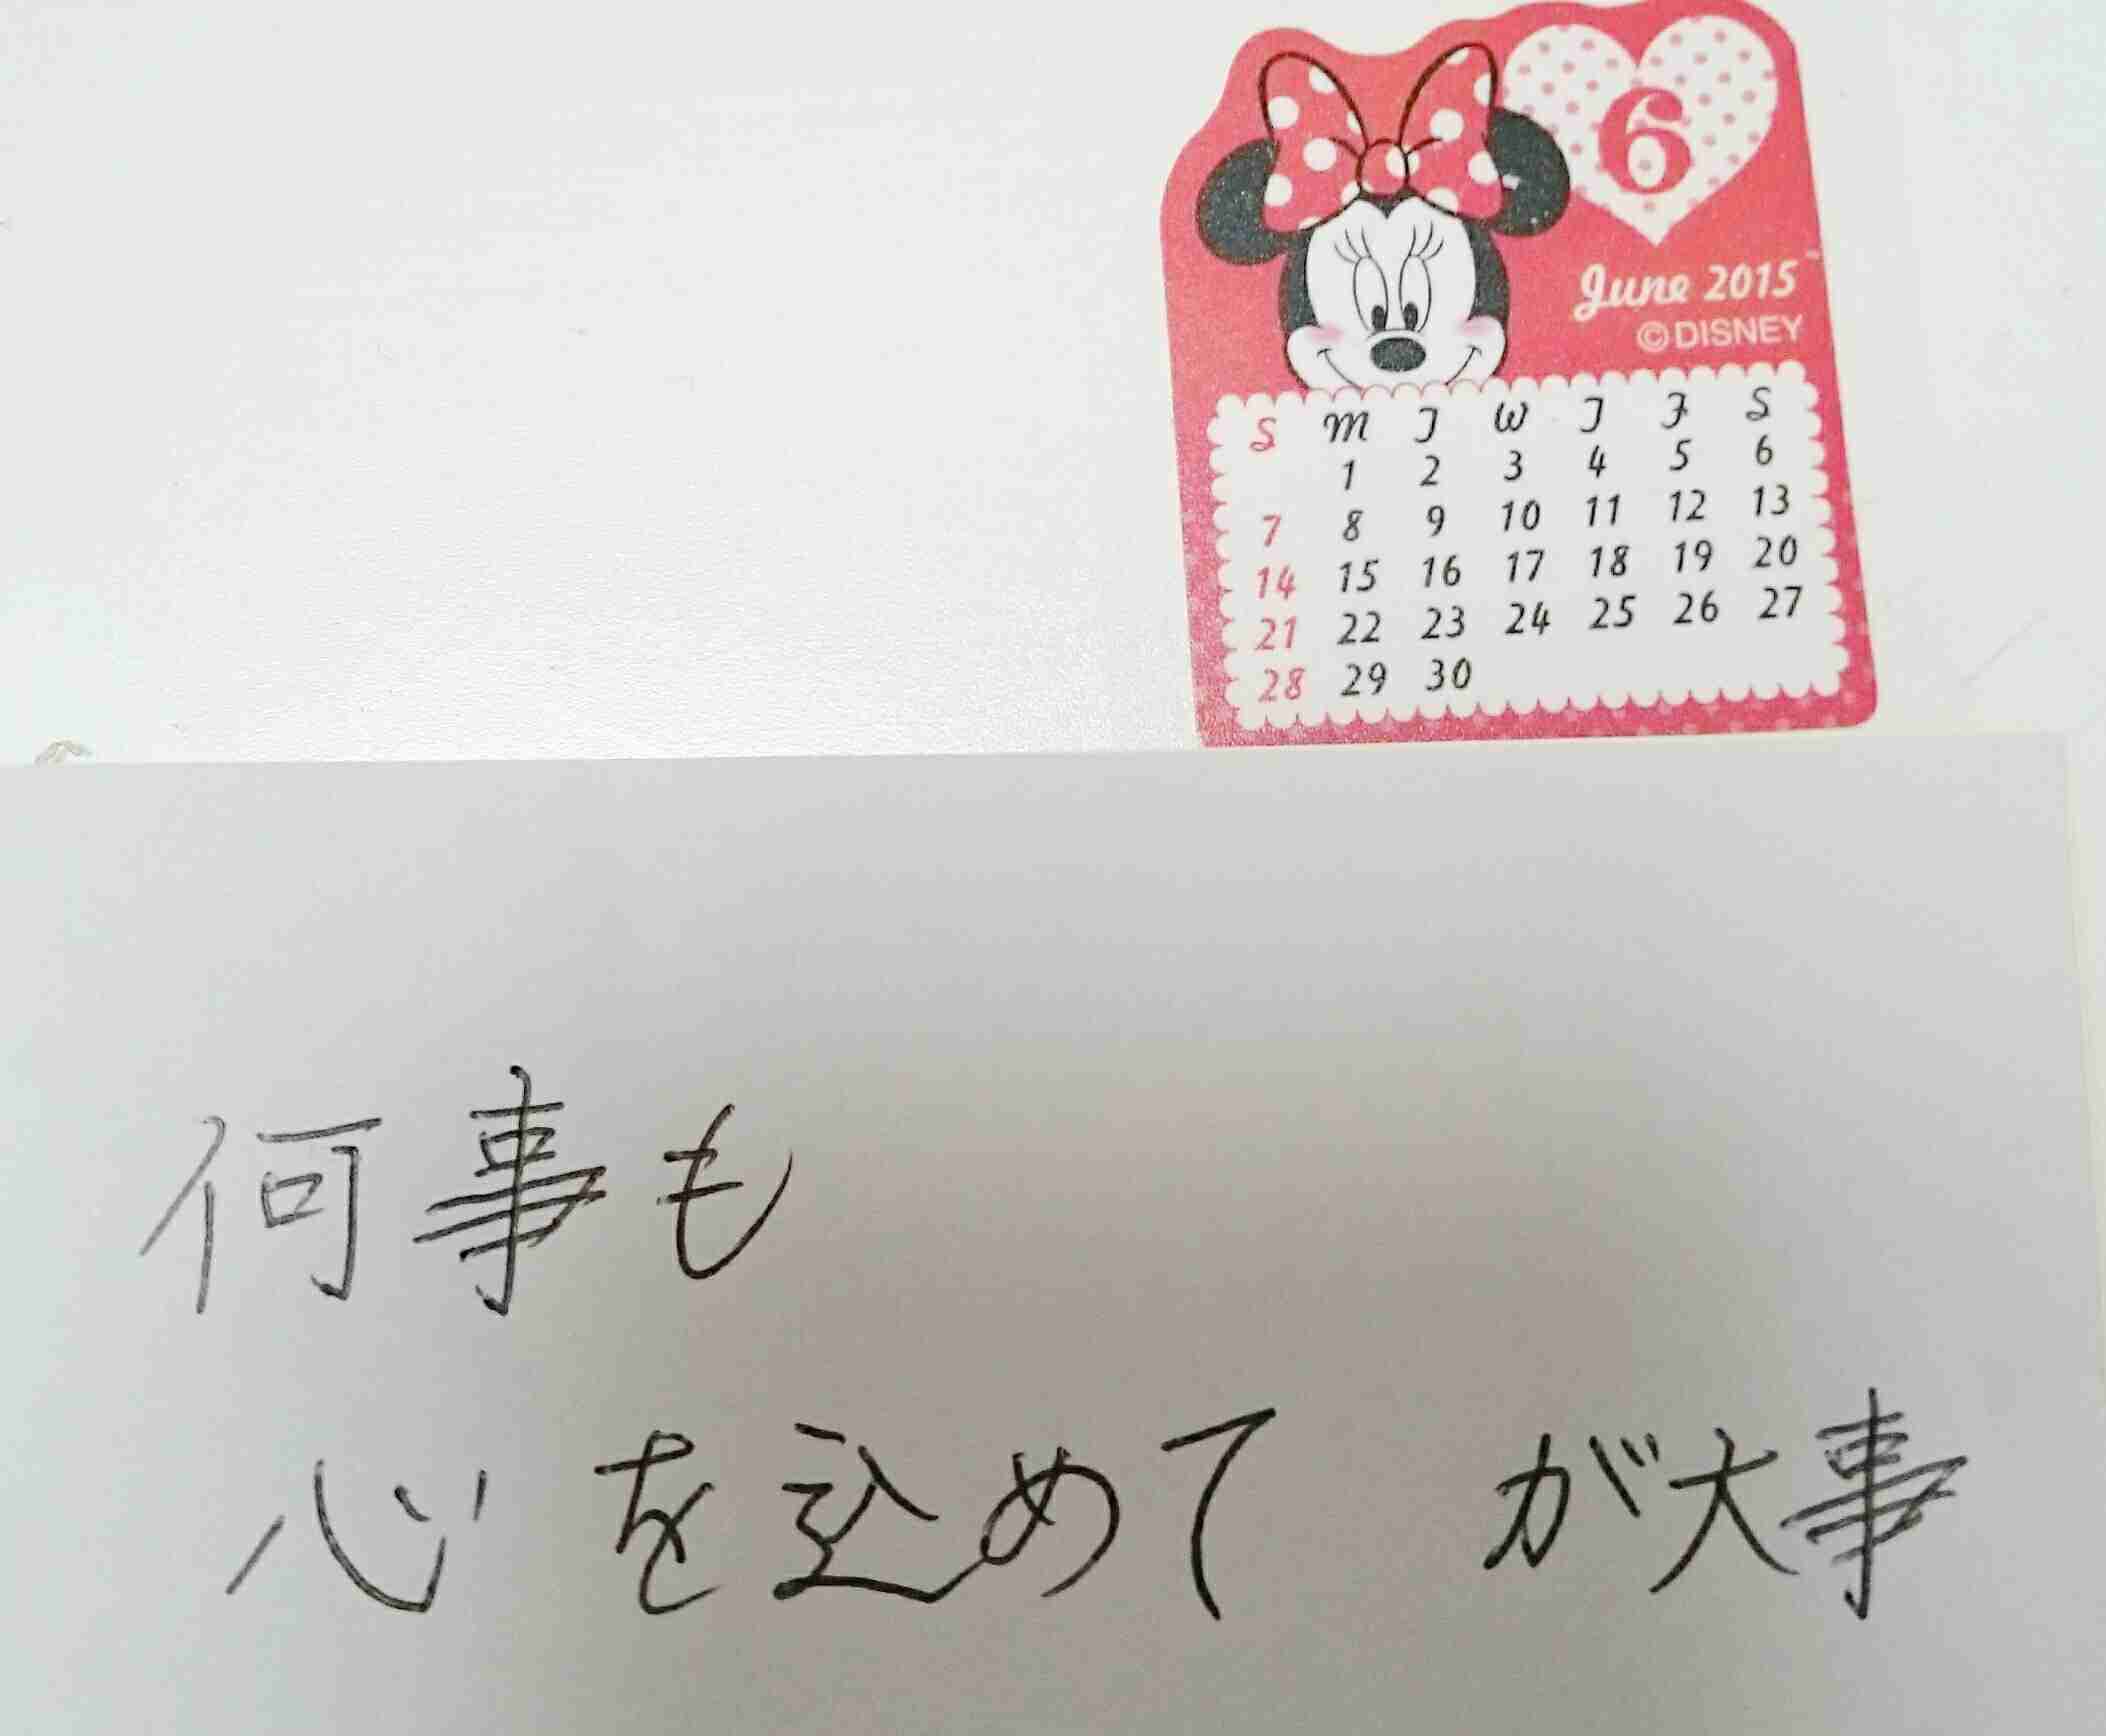 6
June 2015
©DISNEY
S M T W T F S
1 2 3 4 5 6
7 8 9 10 11 12 13
14 15 16 17 18 19 20
21 22 23 24 25 26 27
28 29 30
何事も
心を込めて が大事